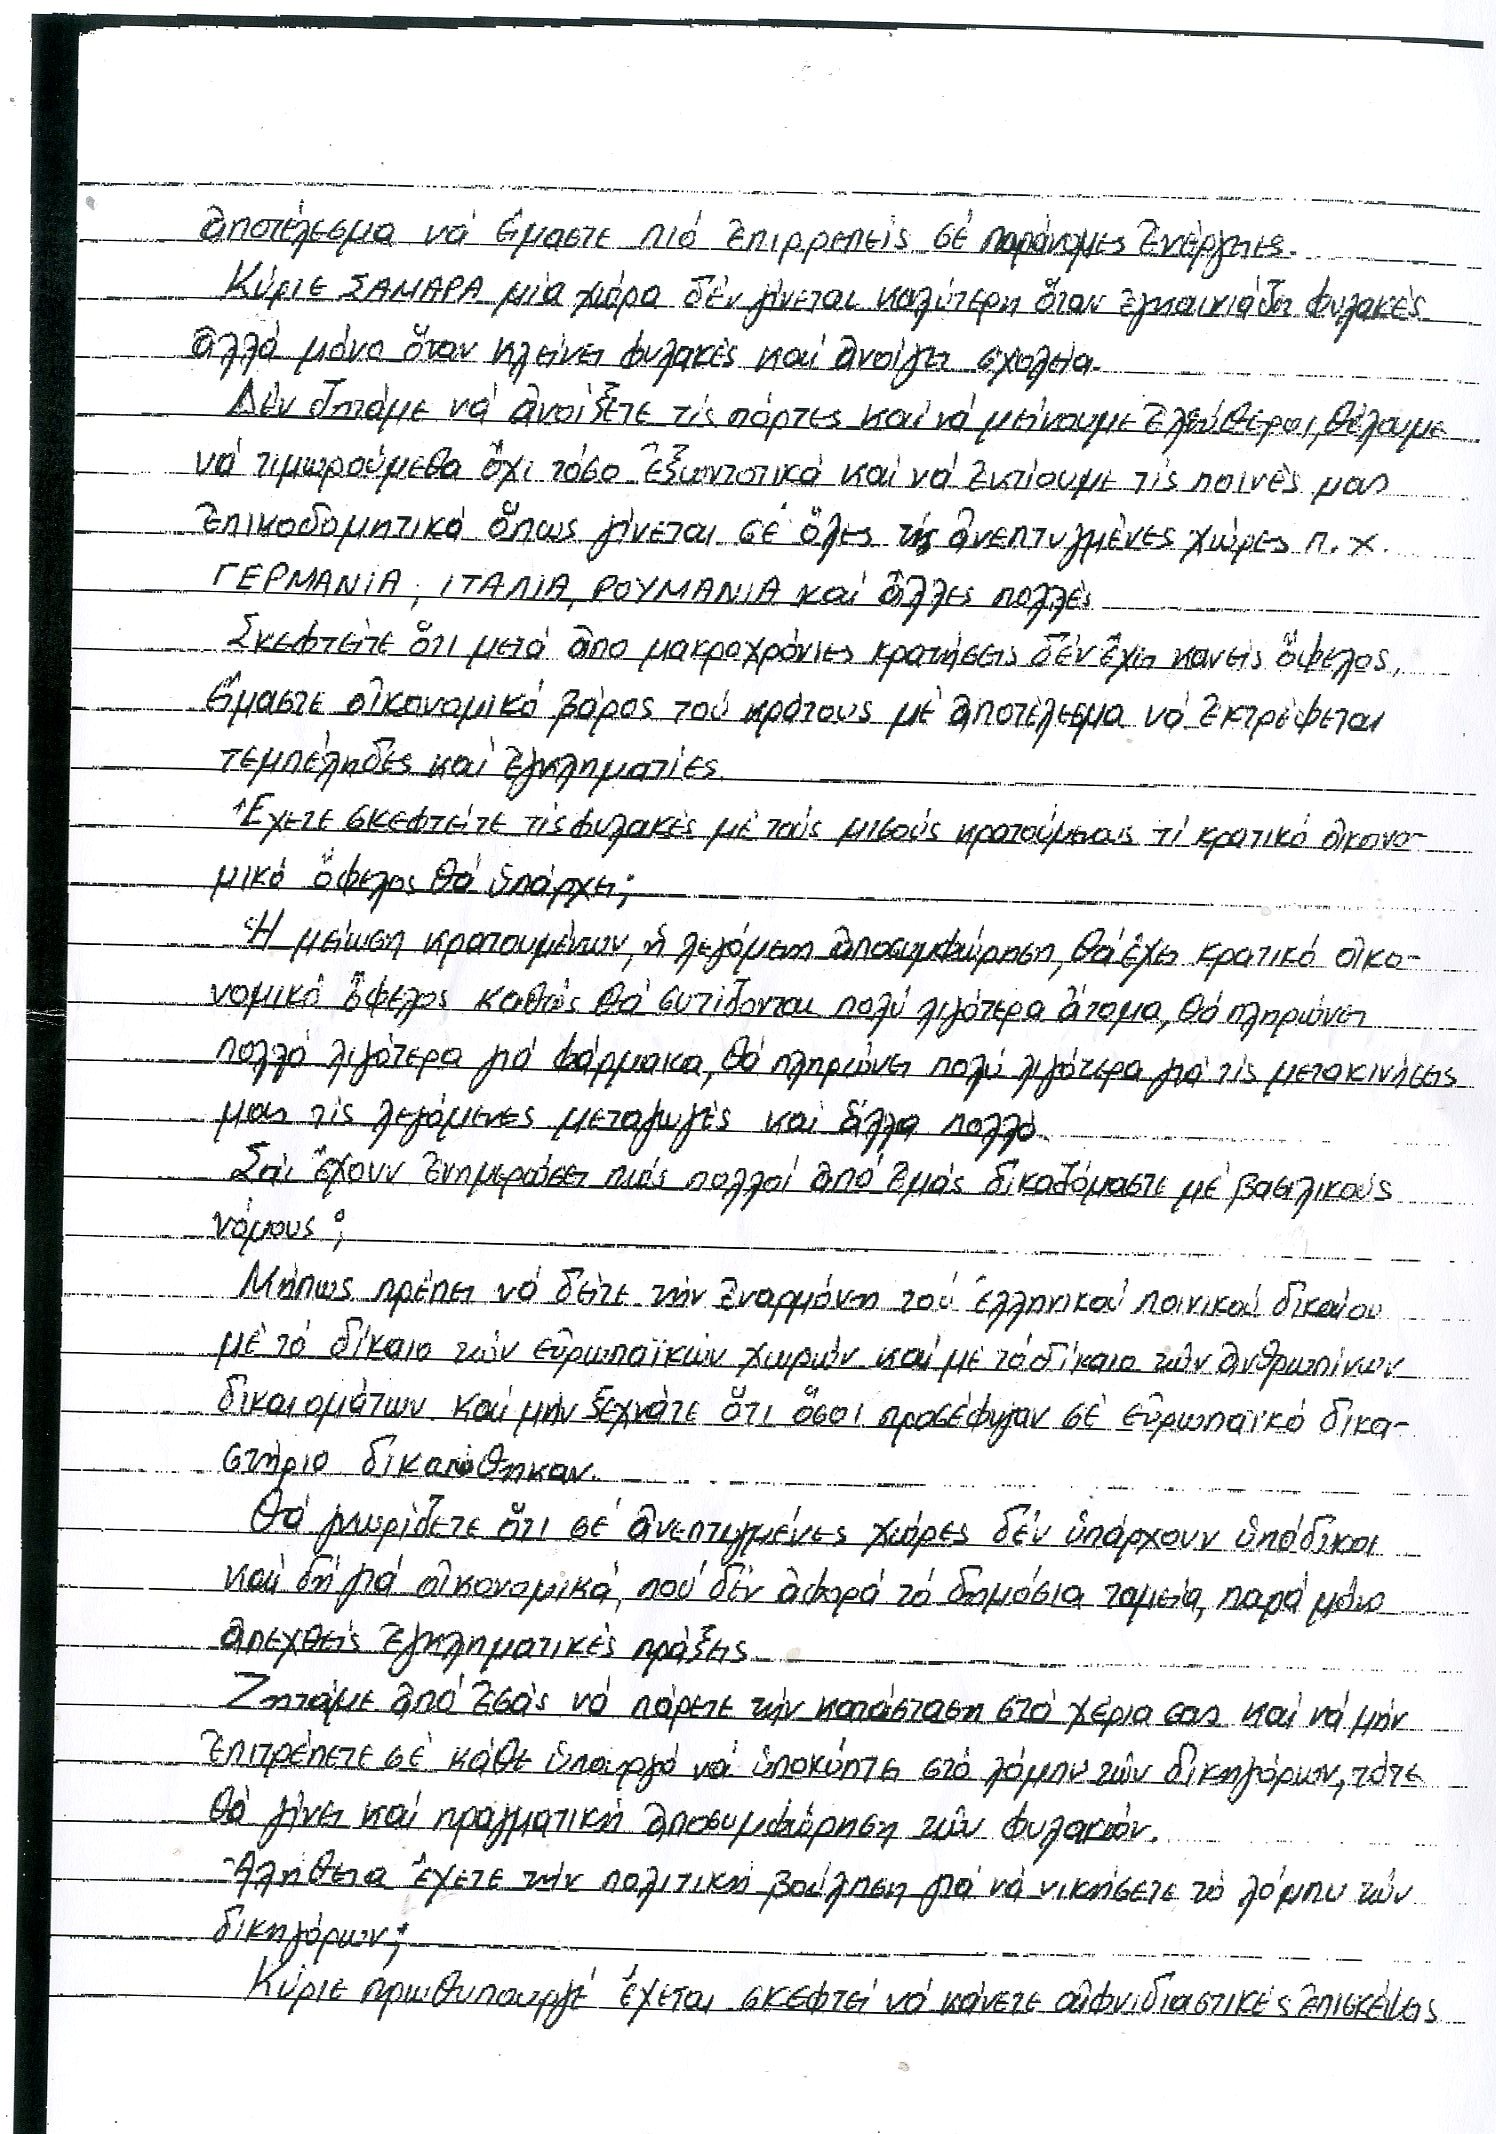 ἀποτέλεσμα νά εἴμαστε πιό ἐπιρρεπεῖς σέ παράνομες ἐνέργειες.
Κύριε ΣΑΜΑΡΑ μία χώρα δέν γίνεται καλύτερη ὅταν ἐγκαινιάζει φυλακές
ἀλλά μόνο ὅταν κλείνει φυλακές καί ἀνοίγει σχολεία.
Δέν ζητάμε νά ἀνοίξετε τίς πόρτες καί νά μείνουμε ἐλεύθεροι, θέλουμε
νά τιμωρούμεθα ὄχι τόσο ἐξωντοτικά καί νά ἐκτίουμε τίς ποινές μας
ἐπικοδομητικά ὅπως γίνεται σέ ὅλες τίς ἀνεπτυγμένες χώρες π.χ.
ΓΕΡΜΑΝΙΑ, ΙΤΑΛΙΑ, ΡΟΥΜΑΝΙΑ καί ἄλλες πολλές
Σκεφτεῖτε ὅτι μετά ἀπο μακροχρόνιες κρατήσεις δέν ἔχει κανείς ὄφελος,
εἴμαστε οἰκονομικό βάρος τού κράτους μέ ἀποτέλεσμα νά ἐκτρέφεται
τεμπέληδες καί ἐγκληματίες.
Ἔχετε σκεφτεῖτε τίς φυλακές μέ τούς μισούς κρατούμενους τί κρατικό οἰκονο-
μικό ὄφελος θά ὑπάρχει;
Ἡ μείωση κρατουμένων, ἡ λεγόμενη ἀποσυμφώρηση, θά ἔχει κρατικό οἰκο-
νομικό ὄφελος καθώς θά συτίζονται πολύ λιγότερα ἄτομα, θά πληρώνει
πολλά λιγότερα γιά φάρμακα, θά πληρώνει πολύ λιγότερα γιά τίς μετακινήσεις
μας τίς λεγόμενες μεταγωγές καί ἄλλα πολλά.
Σάς ἔχουν ἐνημερώσει πώς πολλοί ἀπό ἐμάς δικαζόμαστε μέ βασιλικούς
νόμους;
Μήπως πρέπει νά δεῖτε τήν ἐναρμόνηση τού ἑλληνικού ποινικού δικαίου
μέ τό δίκαιο τών εὐρωπαϊκών χωρών καί μέ τό δίκαιο τών ἀνθρωπίνων
δικαιομάτων. καί μήν ξεχνάτε ὅτι ὅσοι προσέφυγαν σέ εὐρωπαϊκό δικα-
στήριο δικαιώθηκαν.
Θά γνωρίζετε ὅτι σέ ἀνεπτυγμένες χώρες δέν ὑπάρχουν ὑπόδικοι
καί δή γιά οἰκονομικά, πού δέν ἀφορά τό δημόσια ταμεία, παρά μόνο
ἀπεχθείς ἐγκληματικές πράξεις
Ζητάμε ἀπό ἐσάς νά πάρετε τήν κατάσταση στά χέρια σας καί νά μήν
ἐπιτρέπετε σέ κάθε ὑπουργό νά ὑποκύπτει στό λόμπυ τών δικηγόρων, τότε
θά γίνει καί πραγματική ἀποσυμφώρηση τών φυλακών.
Ἀλήθεια ἔχετε τήν πολιτική βούληση γιά νά νικήσετε τό λόμπυ τών
δικηγόρων;
Κύριε πρωθυπουργέ ἔχεται σκεφτεί νά κάνετε αἰφνιδιαστικές ἐπισκέψεις